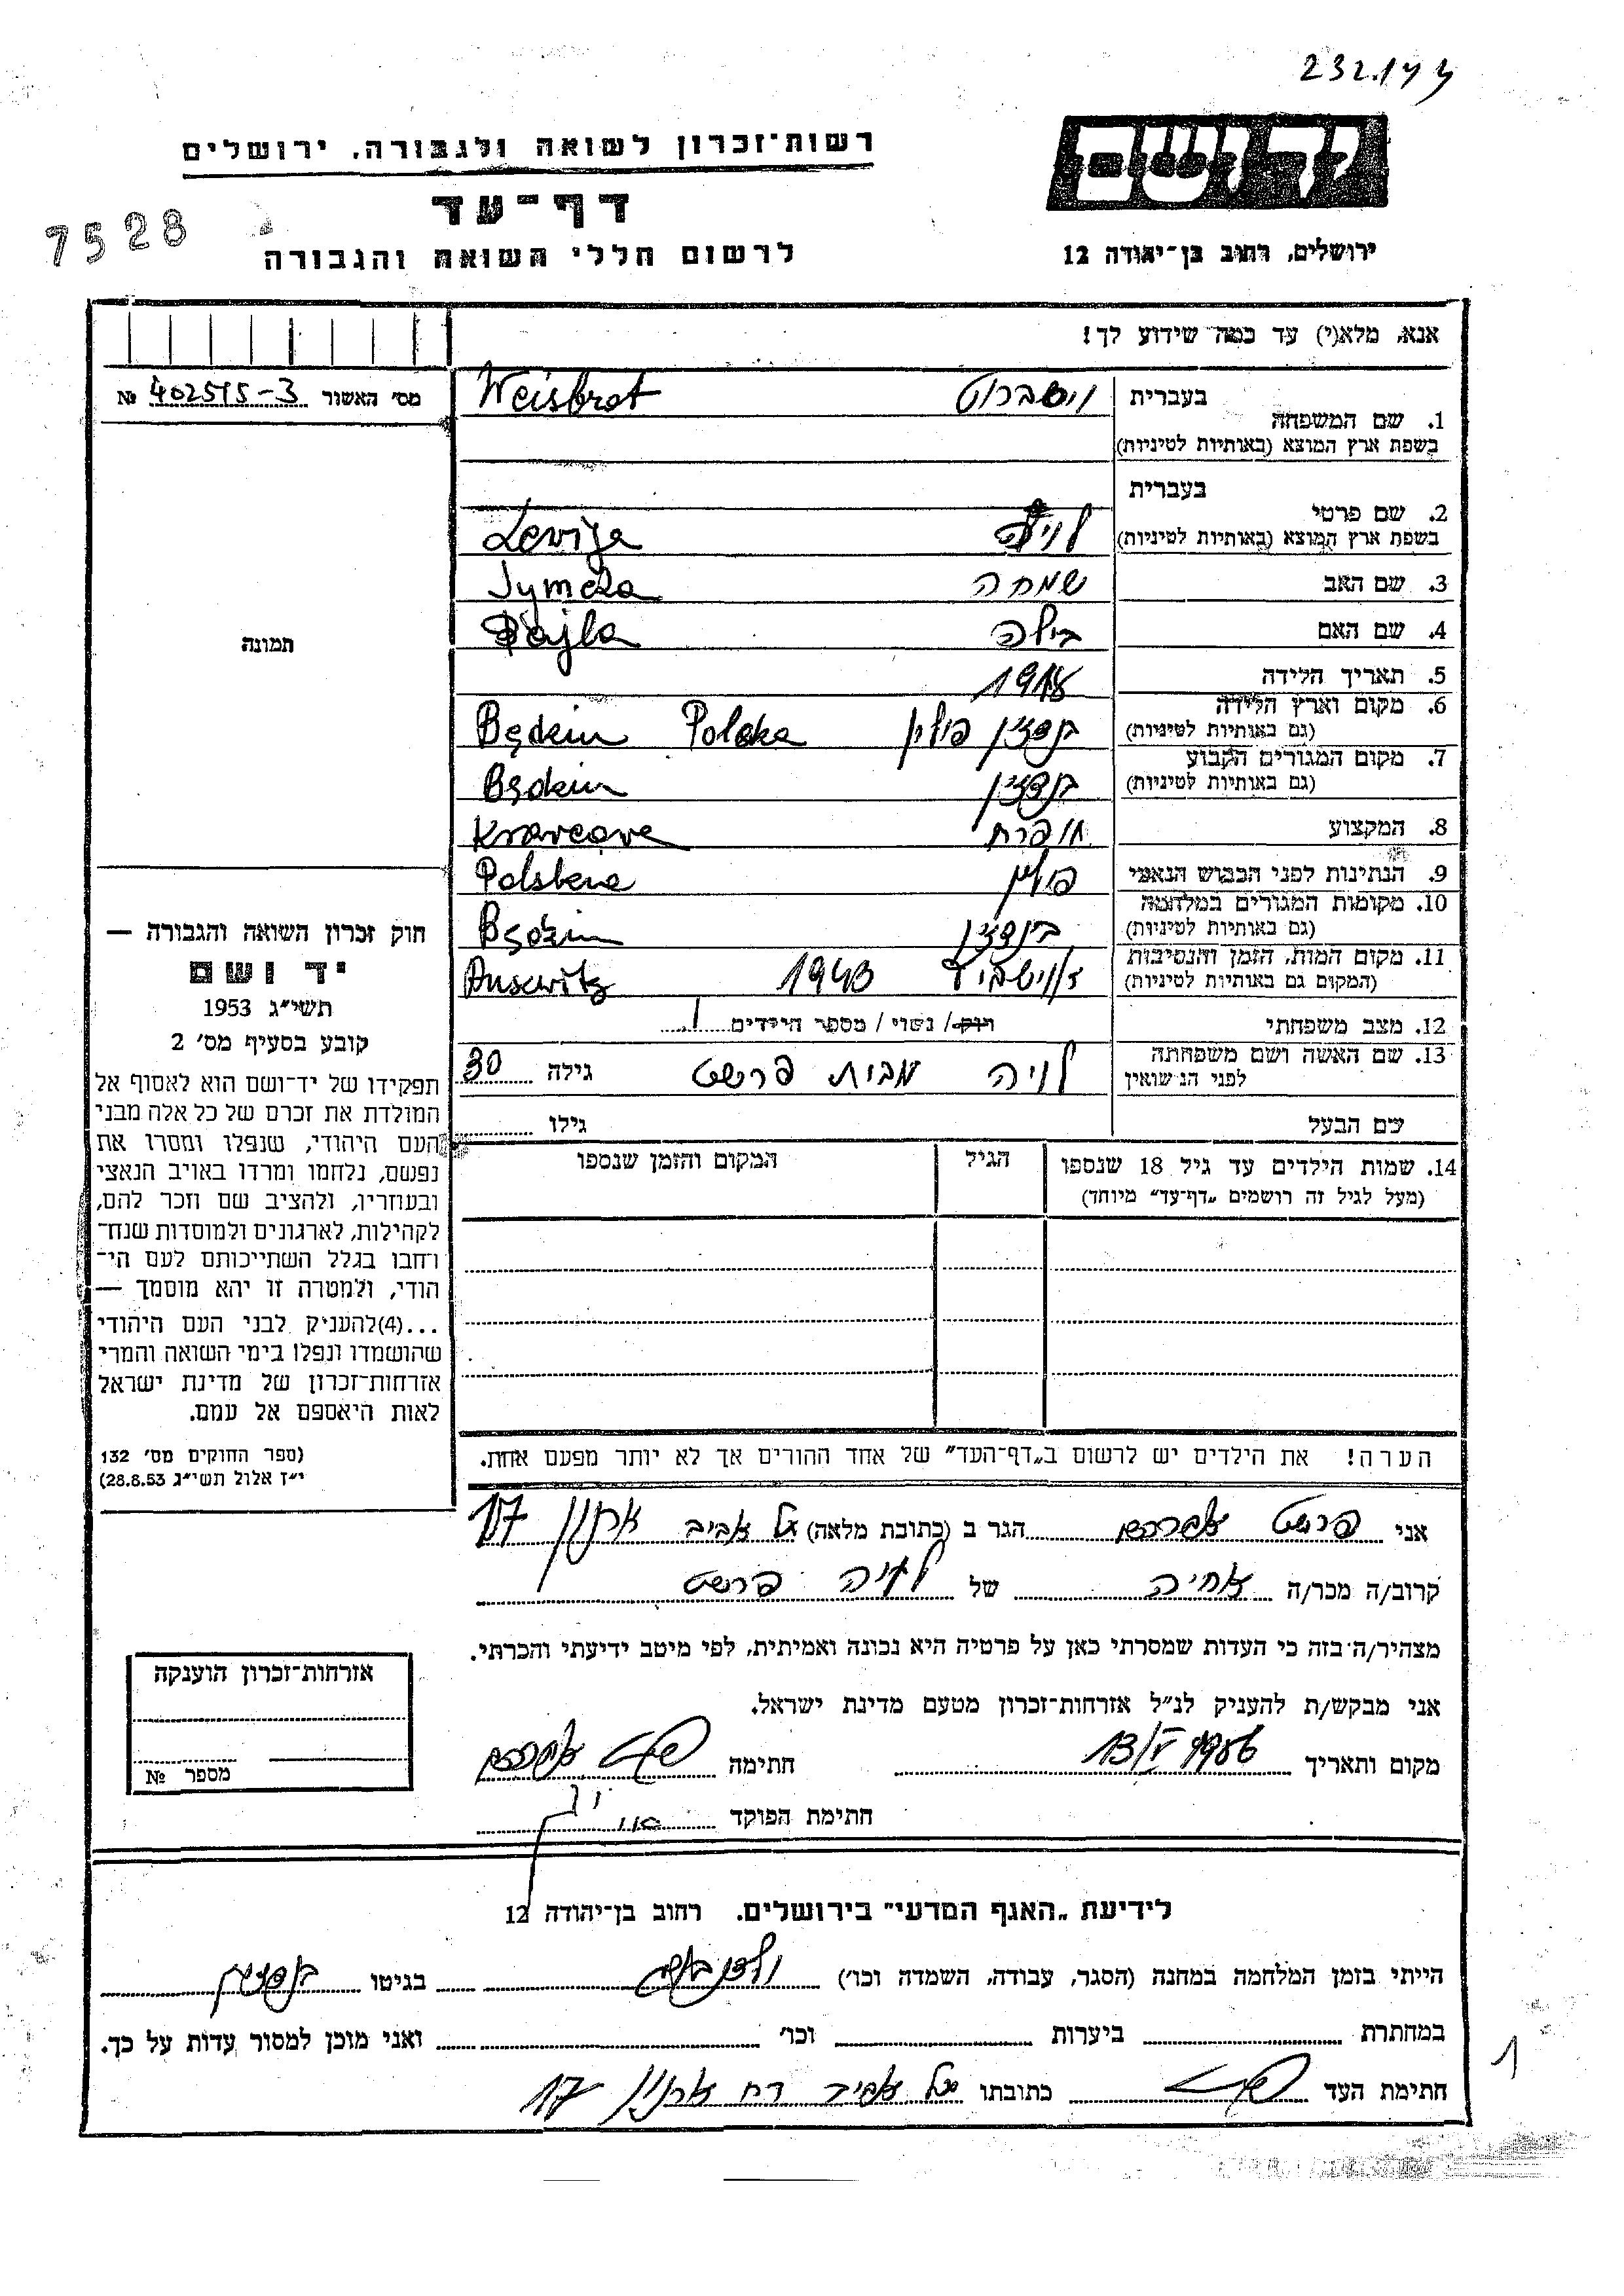 232.144
רשות־זכרון לשואה ולגבורה, ירושלים
ידושם
דף־עד
7528
לרשום חללי השואה והגבורה
ירושלים, רחוב בן־יהודה 12
אנא, מלא(י) עד כמה שידוע לך!
מס׳ האשור 402515-3 №
1. שם המשפחה
בעברית
וישברוט
Weisbrot
בשפת ארץ המוצא (באותיות לטיניות)
2. שם פרטי
בעברית
בשפת ארץ המוצא (באותיות לטיניות)
לויה
Lewija
3. שם האב שמחה Symcha
4. שם האם בילה Bajla
5. תאריך הלידה
6. מקום וארץ הלידה
(גם באותיות לטיניות)
בנדzין פולין Będzin Polska
7. מקום המגורים הקבוע
(גם באותיות לטיניות)
Będzin
8. המקצוע תופרת Krawcowa
9. הנתינות לפני הכבוש הנאצי פולין
10. מקומות המגורים במלחמה
(גם באותיות לטיניות)
Będzin
11. מקום המות, הזמן והנסיבות
(המקום גם באותיות לטיניות)
1943 Auschwitz
12. מצב משפחתי רווק/ נשוי / מספר הילדים 1
13. שם האשה ושם משפחתה
לפני הנשואין
לויה מבית פרשט גילה 30
שם הבעל גילו
14. שמות הילדים עד גיל 18 שנספו
(מעל לגיל זה רושמים „דף־עד״ מיוחד)
הגיל
המקום והזמן שנספו
הערה! את הילדים יש לרשום ב„דף־העד״ של אחד ההורים אך לא יותר מפעם אחת.
תמונה
חוק זכרון השואה והגבורה —
יד ושם
תשי״ג 1953
קובע בסעיף מס׳ 2
תפקידו של יד־ושם הוא לאסוף אל
המולדת את זכרם של כל אלה מבני
העם היהודי, שנפלו ומסרו את
נפשם, נלחמו ומרדו באויב הנאצי
ובעוזריו, ולהציב שם וזכר להם,
לקהילות, לארגונים ולמוסדות שנח־
רחבו בגלל השתייכותם לעם הי־
הודי, ולמטרה זו יהא מוסמך —
...(4)להעניק לבני העם היהודי
שהושמדו ונפלו בימי השואה והמרי
אזרחות־זכרון של מדינת ישראל
לאות היאספם אל עמם.
(ספר החוקים מס׳ 132
י״ז אלול תשי״ג 28.8.53)
אני פרשט אברהם הגר ב (כתובת מלאה) תל אביב ארנון 17
קרוב/ה מכר/ה אחיה של לויה פרשט
מצהיר/ה בזה כי העדות שמסרתי כאן על פרטיה היא נכונה ואמיתית, לפי מיטב ידיעתי והכרתי.
אני מבקש/ת להעניק לנ״ל אזרחות־זכרון מטעם מדינת ישראל.
מקום ותאריך 13/V חתימה פרשט אברהם
חתימת הפוקד
אזרחות־זכרון הוענקה
מספר №
לידיעת „האגף המדעי״ בירושלים. רחוב בן־יהודה 12
הייתי בזמן המלחמה במחנה (הסגר, עבודה, השמדה וכו׳) בגיטו בנדzין
במחתרת ביערות וכו׳ ואני מוכן למסור עדות על כך.
חתימת העד פרשט כתובתו תל אביב רח ארנון 17
1